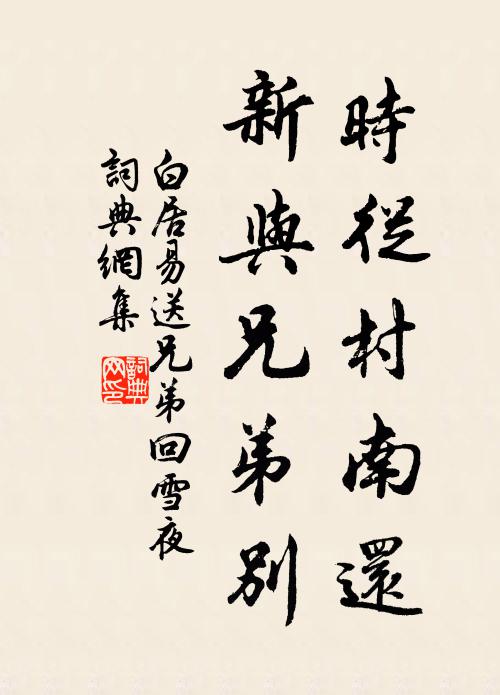 時從村南還
新與兄弟別
白居易送兄弟回雪夜
詞典網集
詞典
网印